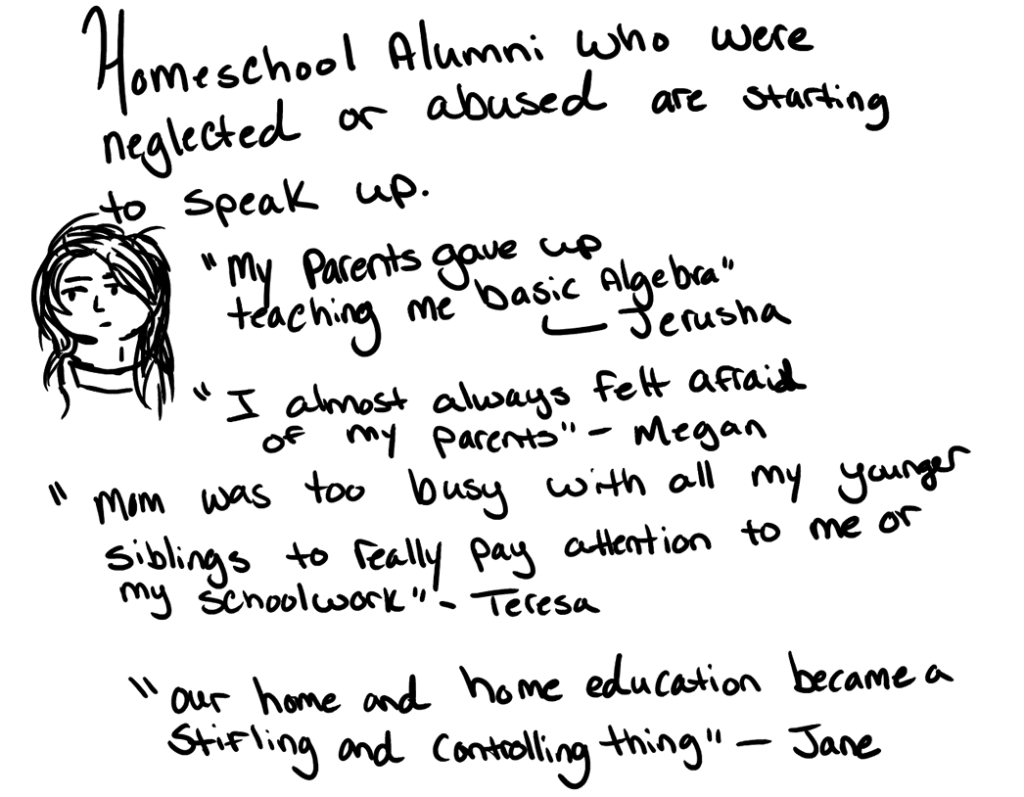 Homeschool Alumni who were
neglected or abused are starting
to speak up.
"My Parents gave up
teaching me basic Algebra"
— Jerusha
"I almost always felt afraid
of my parents" - Megan
"Mom was too busy with all my younger
siblings to really pay attention to me or
my schoolwork" - Teresa
"our home and home education became a
stifling and controlling thing" - Jane